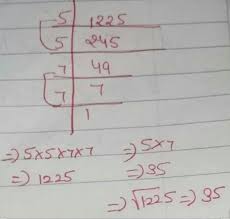 5 | 1225
5 | 245
7 | 49
7 | 7
1
⇒ 5×5×7×7 ⇒ 5×7
⇒ 1225 ⇒ 35
⇒ √1225 ⇒ 35